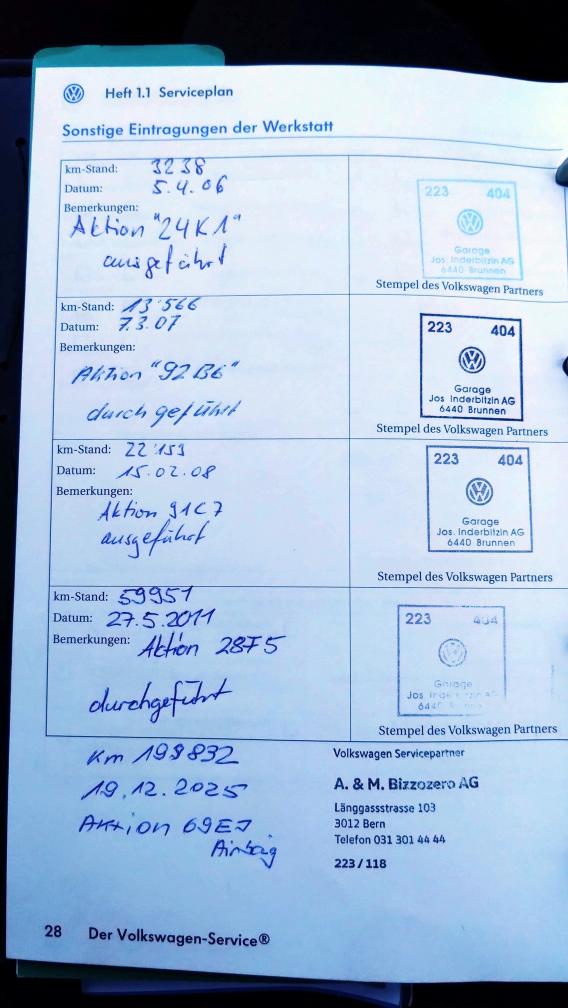 Heft 1.1 Serviceplan
Sonstige Eintragungen der Werkstatt
km-Stand: 3238
Datum: 5.4.06
Bemerkungen:
Aktion "24K1"
ausgeführt
223 404
Garage
Jos. Inderbitzin AG
6440 Brunnen
Stempel des Volkswagen Partners
km-Stand: 13'566
Datum: 7.3.07
Bemerkungen:
Aktion "92B6"
durchgeführt
223 404
Garage
Jos. Inderbitzin AG
6440 Brunnen
Stempel des Volkswagen Partners
km-Stand: 22'153
Datum: 15.02.08
Bemerkungen:
Aktion 91C7
ausgeführt
223 404
Garage
Jos. Inderbitzin AG
6440 Brunnen
Stempel des Volkswagen Partners
km-Stand: 59951
Datum: 27.5.2011
Bemerkungen: Aktion 28F5
durchgeführt
223 404
Garage
Jos
Stempel des Volkswagen Partners
km 198832
19.12.2025
Aktion 69EJ
Airbag
Volkswagen Servicepartner
A. & M. Bizzozero AG
Länggassstrasse 103
3012 Bern
Telefon 031 301 44 44
223/118
28 Der Volkswagen-Service®